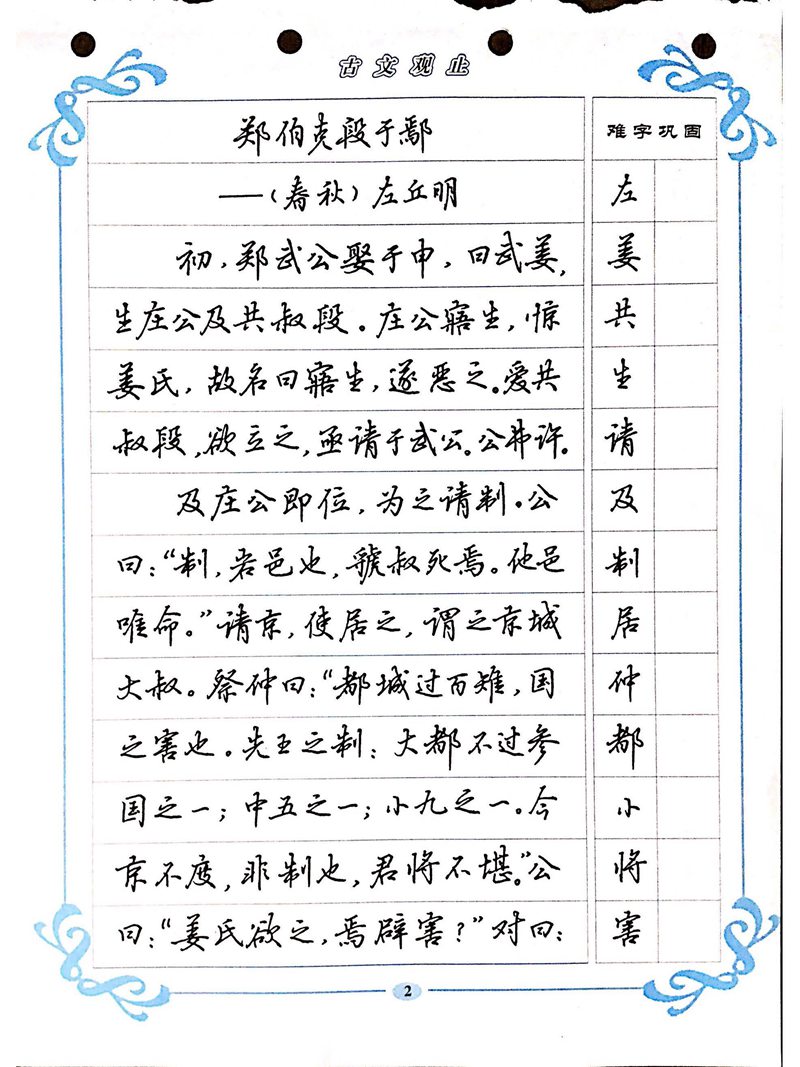 古文观止
郑伯克段于鄢
——（春秋）左丘明
初，郑武公娶于申，曰武姜，
生庄公及共叔段。庄公寤生，惊
姜氏，故名曰寤生，遂恶之。爱共
叔段，欲立之，亟请于武公。公弗许。
及庄公即位，为之请制。公
曰：“制，岩邑也，虢叔死焉。他邑
唯命。”请京，使居之，谓之京城
大叔。祭仲曰：“都城过百雉，国
之害也。先王之制：大都不过参
国之一；中五之一；小九之一。今
京不度，非制也，君将不堪。”公
曰：“姜氏欲之，焉辟害？”对曰：
难字巩固
左
姜
共
生
请
及
制
居
仲
都
小
将
害
2